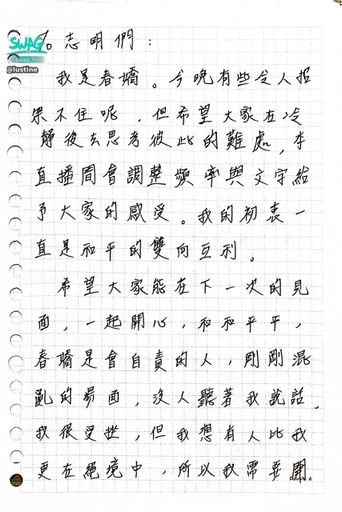 SWAG
swag.live
@lustine
To. 志明們：
我是春嬌。今晚有些令人招
架不住呢，但希望大家在冷
靜後去思考彼此的難處，本
直播間會調整頻率與文字給
予大家的感受。我的初衷一
直是和平的雙向互利。
希望大家能在下一次的見
面，一起開心，和和平平，
春嬌是會自責的人，剛剛混
亂的場面，沒人聽著我說話，
我很受挫，但我想有人比我
更在絕境中，所以我需要開